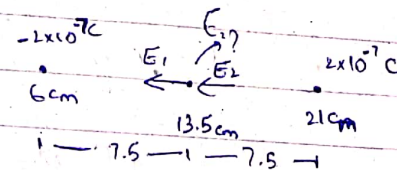 E?
-2x10⁻⁷C E₁ E₂ 2x10⁻⁷ C
6cm 13.5cm 21cm
7.5 7.5